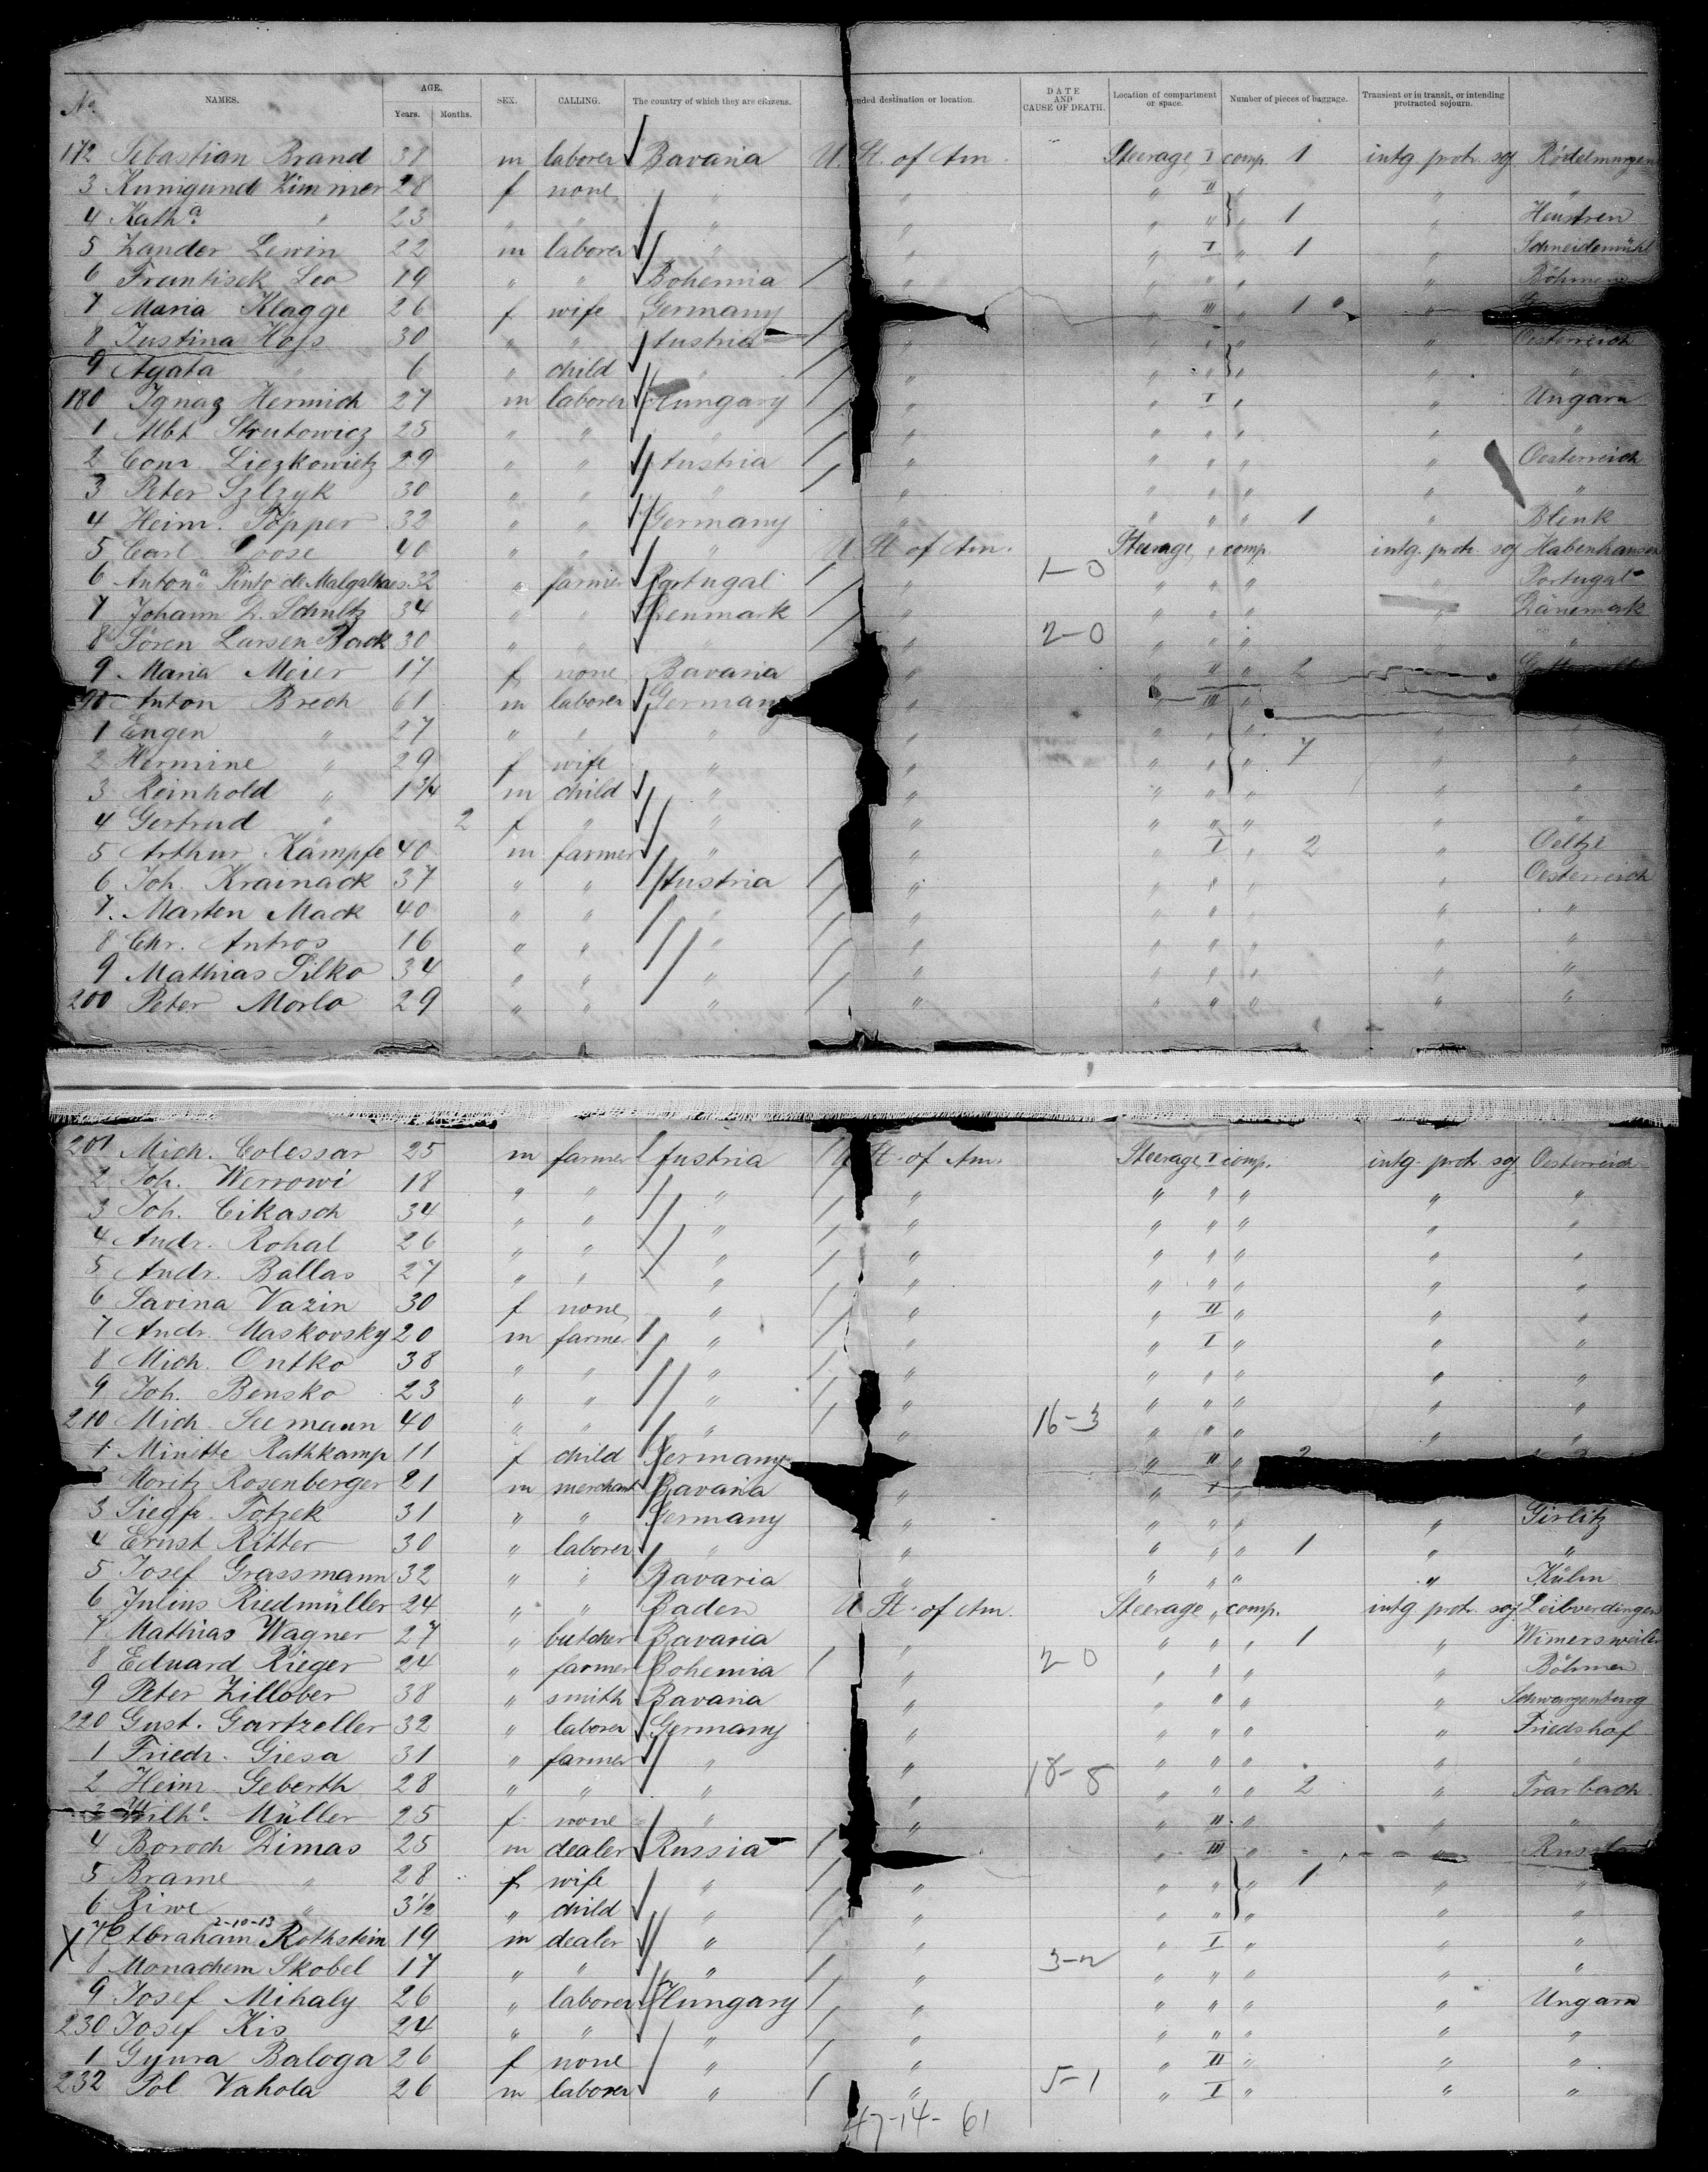 No. NAMES. AGE. Years. Months. SEX. CALLING. The country of which they are citizens. nded destination or location. DATE AND CAUSE OF DEATH. Location of compartment or space. Number of pieces of baggage. Transient or in transit, or intending protracted sojourn.
172 Sebastian Brand 38 m laborer Bavaria U. St. of Am. Steerage I comp. 1 intg protr. soj
3 Kunigund Zimmer 28 f none " " " II " " "
4 Kath.a " 23 " " " " " " " 1 " Heustren
5 Zander Lewin 22 m laborer " " " I " 1 " Schneidemühl
6 Frantisek Leo 19 " " Bohemia " " " " " Böhmen
7 Maria Klagge 26 f wife Germany " " III " 1 "
8 Justina Hofs 30 " " Austria " " " " " Oesterreich
9 Agata " 6 " child " " " " " " "
180 Ignaz Hermich 27 m laborer Hungary " " I " " Ungarn
1 Albt. Strutowicz 25 " " " " " " " " "
2 Conr. Liezkowietz 29 " " Austria " " " " " Oesterreich
3 Peter Szlzyk 30 " " " " " " " " "
4 Heinr. Töpper 32 " " Germany " " " " 1 " Blenk
5 Carl Loose 40 " " " U St. of Am. Steerage " comp. intg. protr. soj Habenhausen
6 Anton.a Pinto de Malgalhaes 32 " farmer Portugal " 1-0 " " " " Portugal
7 Johann D. Schultz 34 " " Denmark " " " " " Dänemark
8 Sören Larsen Back 30 " " " " 2-0 " " " " "
9 Maria Meier 17 f none Bavaria " " II " 2 "
90 Anton Brech 61 m laborer Germany " " III "
1 Eugen " 27 " " " " " " " " "
2 Hermine " 29 f wife " " " " " 7 " "
3 Reinhold " 1 3/4 m child " " " " " " "
4 Gertrud " 2 f " " " " " " " "
5 Arthur Kämpfe 40 m farmer " " " I " 2 " Oeltze
6 Joh. Krainack 37 " " Austria " " " " " Oesterreich
7. Marten Mack 40 " " " " " " " " "
8 Chr. Antros 16 " " " " " " " " "
9 Mathias Silko 34 " " " " " " " " "
200 Peter Morlo 29 " " " " " " " " "
201 Mich. Colessar 25 m farmer Austria U St. of Am. Steerage I comp. intg. protr. soj Oesterreich
2 Joh. Werrowi 18 " " " " " " " " "
3 Joh. Cikasch 34 " " " " " " " " "
4 Andr. Rohal 26 " " " " " " " " "
5 Andr. Ballas 27 " " " " " " " " "
6 Savina Vazin 30 f none " " " II " " "
7 Andr. Maskovsky 20 m farmer " " " I " " "
8 Mich. Ontko 38 " " " " " " " " "
9 Joh. Bensko 23 " " " " " " " " "
210 Mich. Seemann 40 " " " " 16-3 " " " " "
1 Minette Rathkamp 11 f child Germany " " II " 2
2 Moritz Rosenberger 21 m merchant Bavaria " " I "
3 Siegfr. Totzek 31 " " Germany " " " " " Girlitz
4 Ernst Ritter 30 " laborer " " " " " 1 " "
5 Josef Grassmann 32 " " Bavaria " " " " " Külm
6 Julius Riedmüller 24 " " Baden U St. of Am. Steerage " comp. intg protr. soj Leibverdingen
7 Mathias Wagner 27 " butcher Bavaria " " " " 1 " Wimersweiler
8 Eduard Rieger 24 " farmer Bohemia " 2-0 " " " " Böhmen
9 Peter Zillober 38 " smith Bavaria " " " " " Schwarzenburg
220 Gust. Gartzeller 32 " laborer Germany " " " " " Friedshof
1 Friedr. Giesa 31 " farmer " " " " " " "
2 Heinr. Geberth 28 " " " " 18-8 " " " 2 " Trarbach
3 Wilh.e Müller 25 f none " " " II " " "
4 Boroch Dimas 25 m dealer Russia " " III " "
5 Brame " 28 f wife " " " " " 1 " "
6 Riwe " 3 1/2 " child " " " " " " "
2-10-13
X 7 Abraham Rothstein 19 m dealer " " " I " " "
8 Monachem Skobel 17 " " " " 3-2 " " " " "
9 Josef Mihaly 26 " laborer Hungary " " " " " Ungarn
230 Josef Kis 24 " " " " " " " " "
1 Gyura Baloga 26 f none " " " II " " "
232 Pol Vahola 26 m laborer " " 5-1 " I " " "
47-14-61